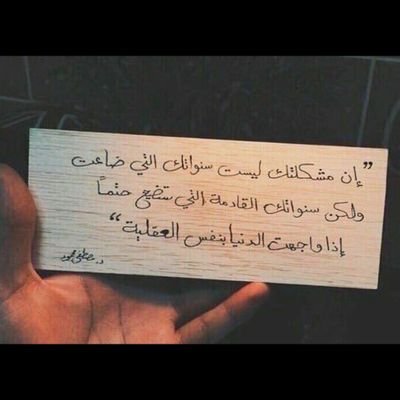 ”إن مشكلتك ليست سنواتك التي ضاعت
ولكن سنواتك القادمة التي ستضيع حتماً
إذا واجهت الدنيا بنفس العقلية“
د. مصطفى محمود